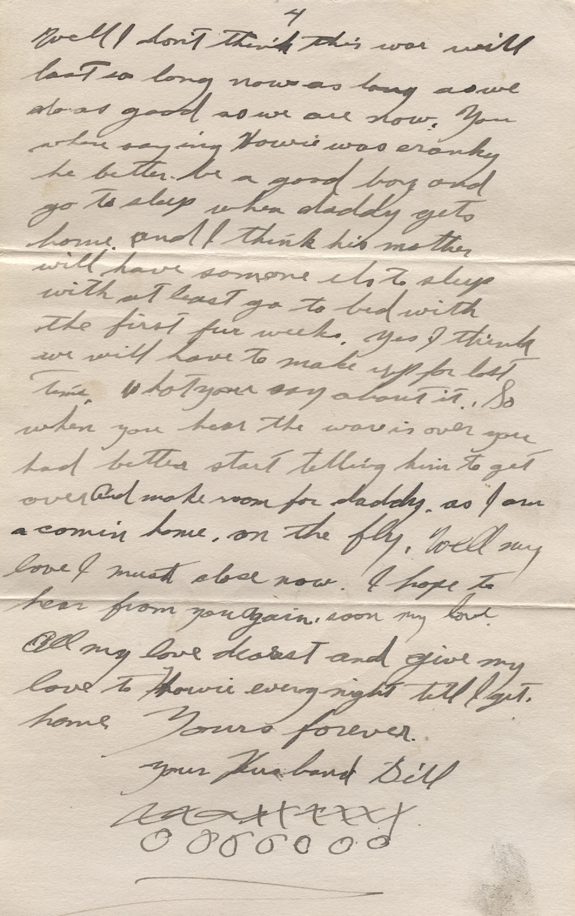 4
Well I don't think this war will
last so long now as long as we
do as good as we are now. You
where saying Howie was cranky
he better be a good boy and
go to sleep when daddy gets
home. and I think his mother
will have someone els to sleep
with at least go to bed with
the first fur weeks. Yes I think
we will have to make up for lost
time. what your say about it. So
when you hear the war is over you
had better start telling him to get
over and make room for daddy. as I am
a comin home. on the fly. Well my
love I must close now. I hope to
hear from you again. soon my love.
All my love dearest and give my
love to Howie every night till I get.
home Yours forever.
your Husband Bill
xxxxxxxxxx
OOOOOOO